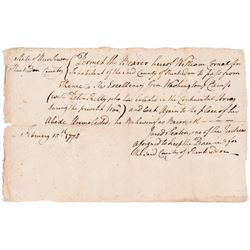 State of New Jersey
Hunterdon County
Permit the Bearer hereof William
Inhabitant of the said County of Hunterdon to pass from
Thence to His Excellency Gen. Washingtons Camp
(with who in the Continental Army
during the present War) and back Again to the place of his
Abode Unmolested he Behaving as Becometh
Jared Sexton, one of the Justices
assigned to keep the Peace in & for
the said County of Hunterdon
February 10th 1778